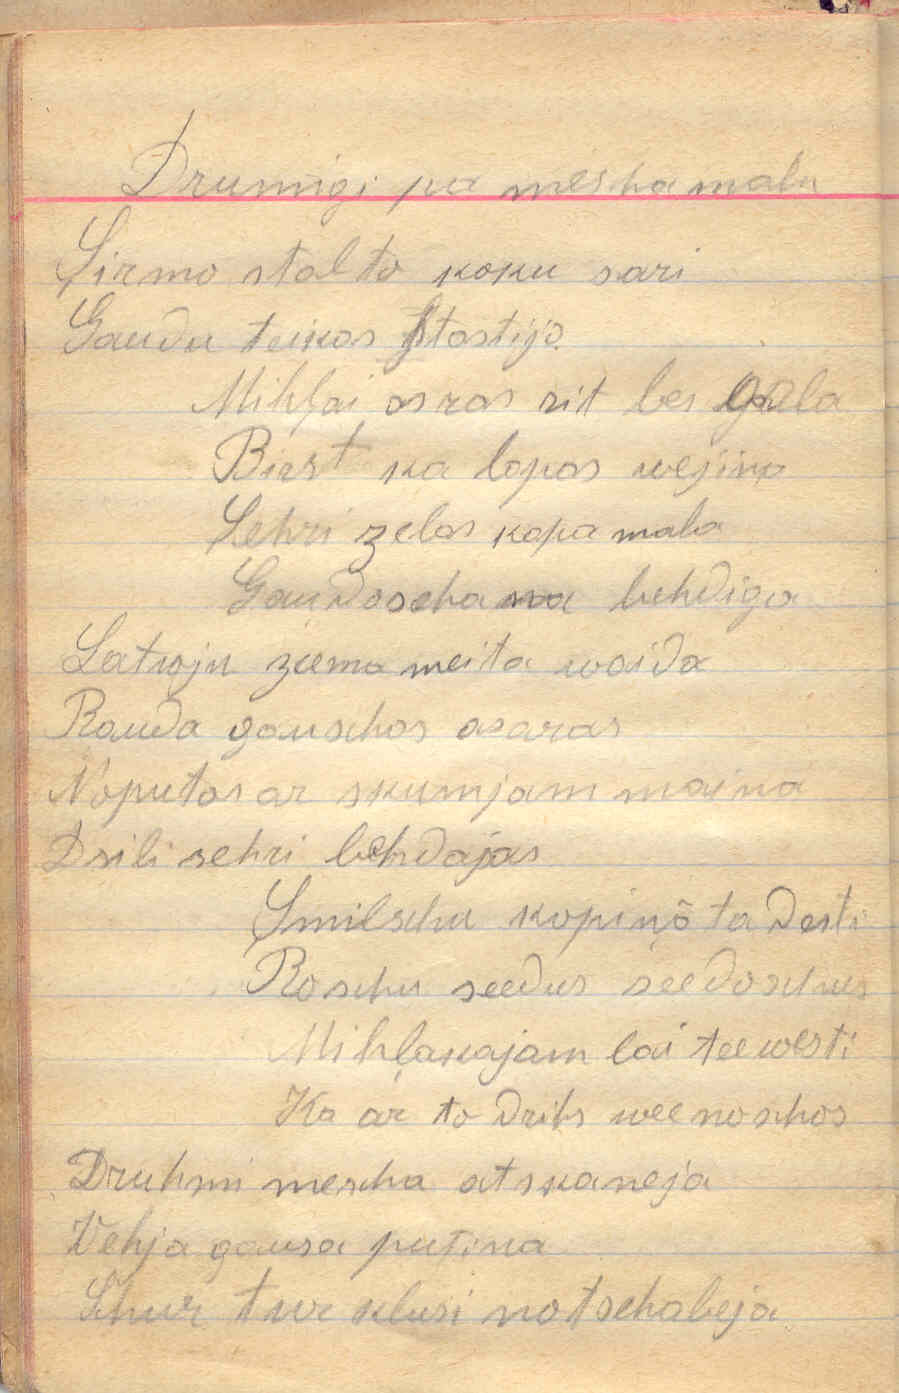 Drumigi pa mescha malu
Sirmo stalto koku sari
Gaudu teikas stastijo
Mihļai asras rit bes gala
Birst ka lapas wejina
Sehri zelas kapa mala
Gaudoschana behdiga
Latwju zeema meita waida
Rauda gauschas asaras
Noputas ar skumjam maina
Dsili sehri behdajas
Smilschu kopiņō ta desti
Roschu seedus seedoschus
Mihļakajam lai tee westi
Ka ar to drihs weenoschos
Druhmi mescha atskaneja
Vehja gausa putina
Schur tur klusi notschabeja